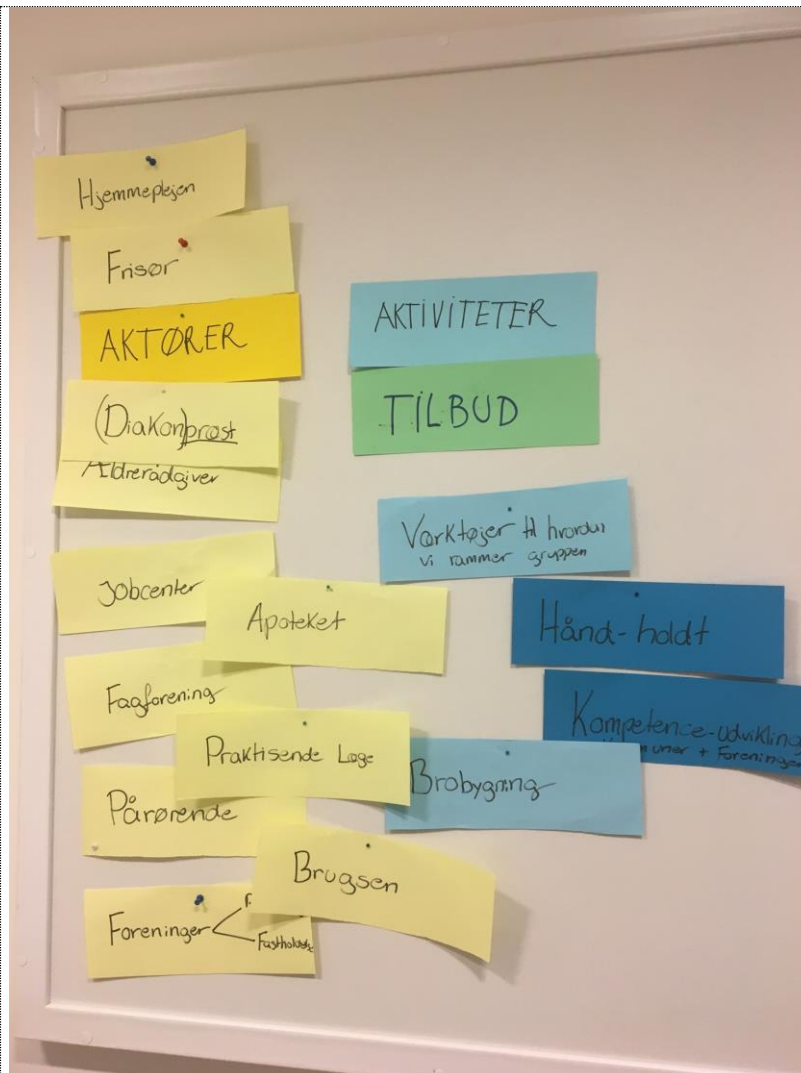 Hjemmeplejen
Frisør
AKTØRER
(Diakon)præst
Ældrerådgiver
Jobcenter
Apoteket
Fagforening
Praktisende Læge
Pårørende
Brugsen
Foreninger
AKTIVITETER
TILBUD
Værktøjer til hvordan
vi rammer gruppen
Hånd-holdt
Kompetence-udvikling
+ Foreninger
Brobygning